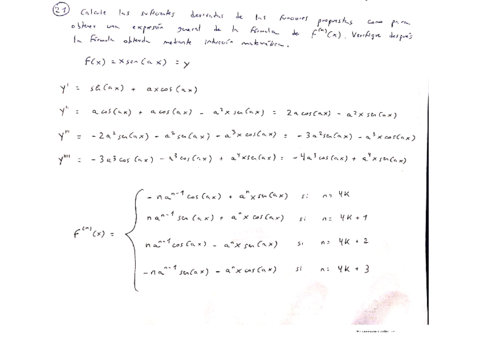 21 Calcule las suficientes derivadas de las funciones propuestas como para
obtener una expresión general de la fórmula de f⁽ⁿ⁾(x). Verifique después
la fórmula obtenida mediante inducción matemática.
f(x) = x sen(ax) = y
y' = sen(ax) + ax cos(ax)
y'' = a cos(ax) + a cos(ax) - a²x sen(ax) = 2a cos(ax) - a²x sen(ax)
y''' = -2a² sen(ax) - a² sen(ax) - a³x cos(ax) = -3a² sen(ax) - a³x cos(ax)
y'''' = -3a³ cos(ax) - a³ cos(ax) + a⁴x sen(ax) = -4a³ cos(ax) + a⁴x sen(ax)
f⁽ⁿ⁾(x) =
-naⁿ⁻¹ cos(ax) + aⁿx sen(ax) si n=4K
naⁿ⁻¹ sen(ax) + aⁿx cos(ax) si n=4K+1
naⁿ⁻¹ cos(ax) - aⁿx sen(ax) si n=4K+2
-naⁿ⁻¹ sen(ax) - aⁿx cos(ax) si n=4K+3